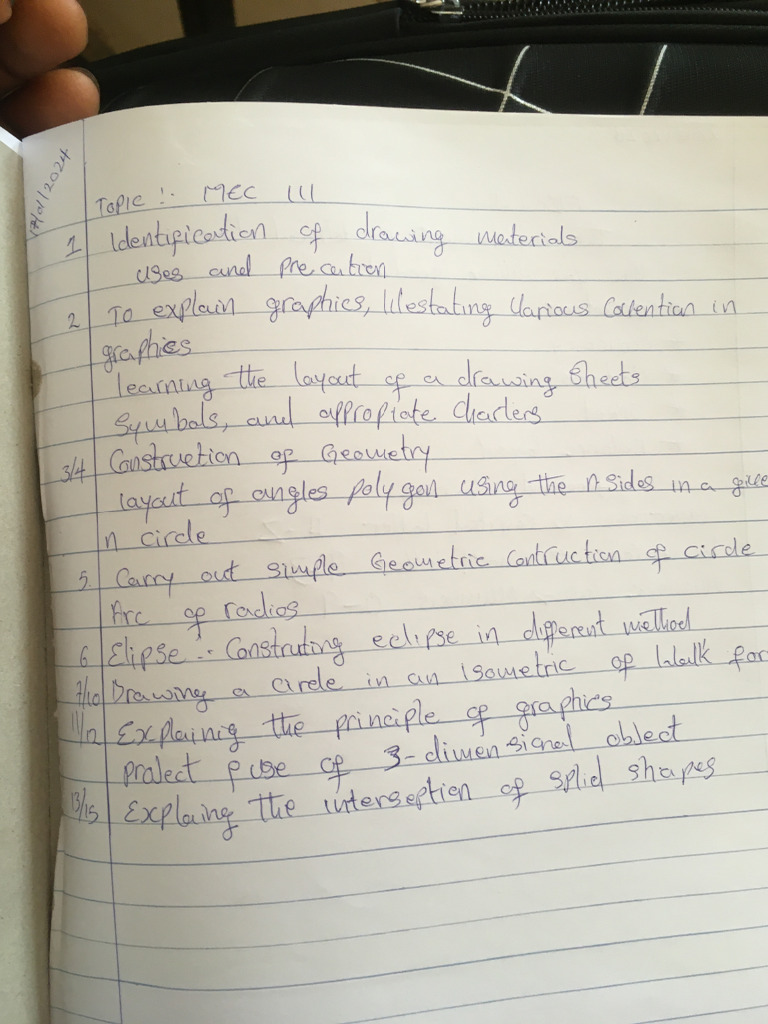 17/01/2024
Topic :- MEC 111
1 Identification of drawing materials
uses and precution
2 To explain graphics, Illestating Various Covention in
graphies
learning the layout of a drawing sheets
Symbols, and appropiate Charters
3/4 Construction of Geometry
layout of angles polygon using the n sides in a give
n circle
5. Carry out simple Geometric Contruction of circle
Arc of radios
6 Elipse :- Construting eclipse in different method
7/10 Drawing a circle in an Isometric of Walk for
11/12 Explainig the principle of graphics
project puse of 3-dimensional object
13/15 Explaing the interseption of splid shapes